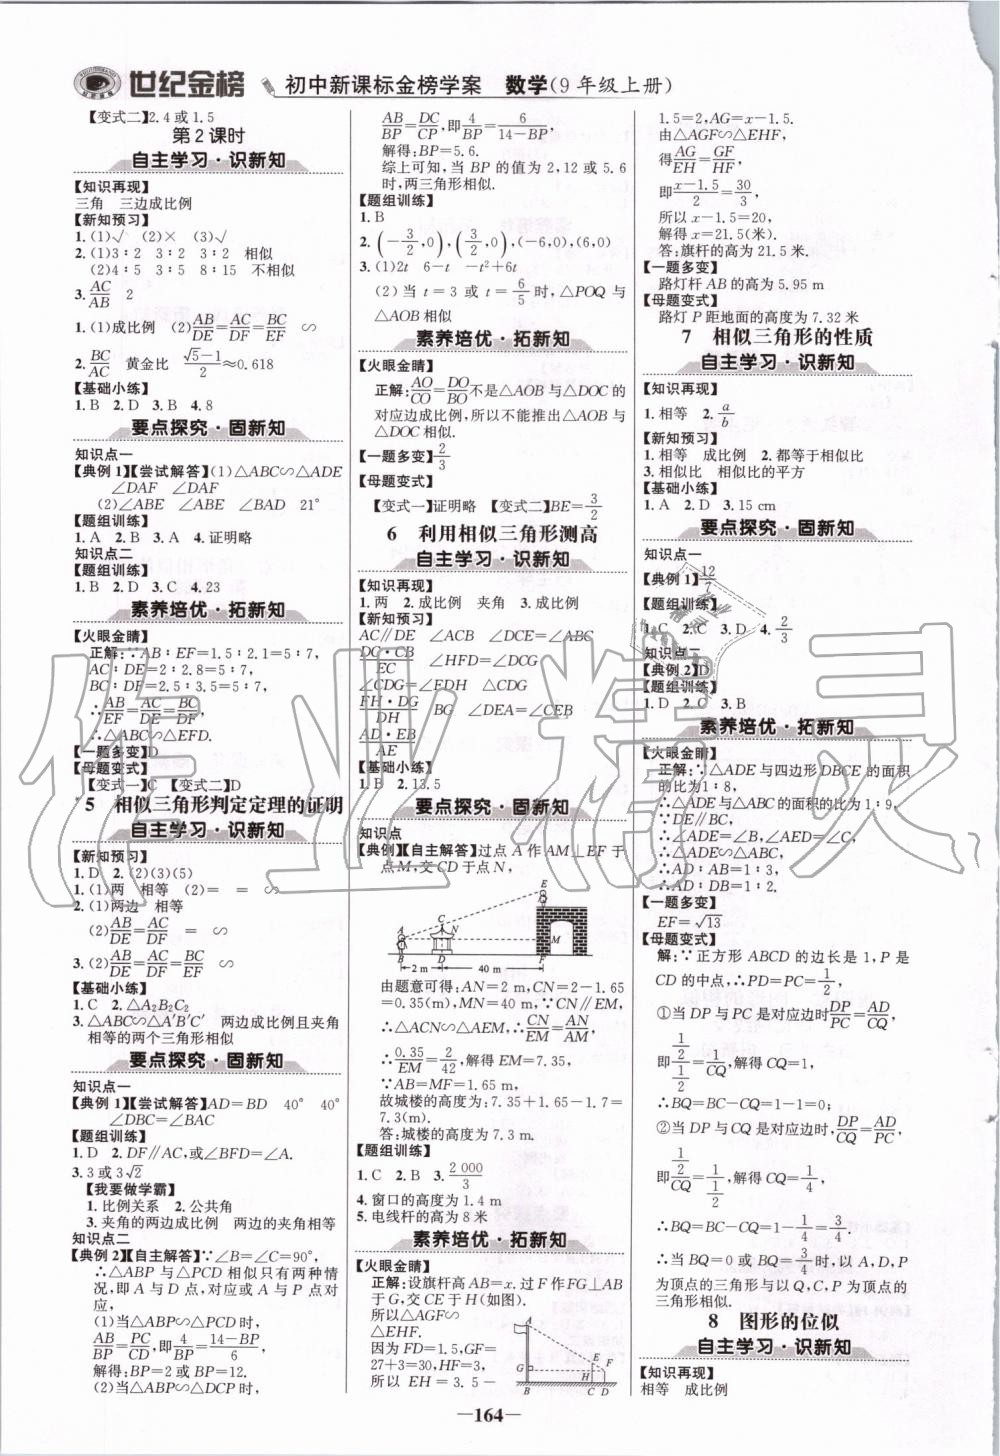 世纪金榜 初中新课标金榜学案 数学(9年级上册)
【变式二】2.4或1.5
第2课时
自主学习·识新知
【知识再现】
三角 三边成比例
【新知预习】
1.(1)√ (2)× (3)√
2.(1)3∶2 3∶2 3∶2 相似
(2)4∶5 3∶5 8∶15 不相似
3.AC/AB 2
1.(1)成比例 (2)AB/DE=AC/DF=BC/EF ∽
2.BC/AC 黄金比 (√5-1)/2≈0.618
【基础小练】
1.B 2.D 3.B 4.8
要点探究·固新知
知识点一
【典例1】【尝试解答】(1)△ABC∽△ADE
∠DAF ∠DAF
(2)∠ABE ∠ABE ∠BAD 21°
【题组训练】
1.A 2.B 3.A 4.证明略
知识点二
【题组训练】
1.B 2.D 3.C 4.23
素养培优·拓新知
【火眼金睛】
正解:∵AB∶EF=1.5∶2.1=5∶7,
AC∶DE=2∶2.8=5∶7,
BC∶DF=2.5∶3.5=5∶7,
∴AB/EF=AC/DE=BC/DF,
∴△ABC∽△EFD.
【一题多变】D
【母题变式】
【变式一】C 【变式二】D
5 相似三角形判定定理的证明
自主学习·识新知
【新知预习】
1.D 2.(2)(3)(5)
1.(1)两 相等 (2)= = ∽
2.(1)两边 相等
(2)AB/DE=AC/DF = ∽
3.(2)AB/DE=AC/DF=BC/EF ∽
【基础小练】
1.C 2.△A₂B₂C₂
3.△ABC∽△A′B′C′ 两边成比例且夹角
相等的两个三角形相似
要点探究·固新知
知识点一
【典例1】【尝试解答】AD=BD 40° 40°
∠DBC=∠BAC
【题组训练】
1.D 2.DF∥AC,或∠BFD=∠A.
3.3或3√2
【我要做学霸】
1.比例关系 2.公共角
3.夹角的两边成比例 两边的夹角相等
知识点二
【典例2】【自主解答】∵∠B=∠C=90°,
∴△ABP与△PCD相似只有两种情
况,即A与D点,对应或A与P点对
应,
(1)当△ABP∽△PCD时,
AB/BP=PC/CD,即4/BP=(14-BP)/6,
解得:BP=2或BP=12.
(2)当△ABP∽△DCP时,
AB/BP=DC/CP,即4/BP=6/(14-BP),
解得:BP=5.6.
综上可知,当BP的值为2,12或5.6
时,两三角形相似.
【题组训练】
1.B
2.(-3/2,0),(3/2,0),(-6,0),(6,0)
3.(1)2t 6-t -t²+6t
(2)当t=3或t=6/5时,△POQ与
△AOB相似
素养培优·拓新知
【火眼金睛】
正解:AO/CO=DO/BO不是△AOB与△DOC的
对应边成比例,所以不能推出△AOB与
△DOC相似.
【一题多变】2/3
【母题变式】
【变式一】证明略 【变式二】BE=3/2
6 利用相似三角形测高
自主学习·识新知
【知识再现】
1.两 2.成比例 夹角 3.成比例
【新知预习】
AC∥DE ∠ACB ∠DCE=∠ABC
DC·CB/EC ∠HFD=∠DCG
∠CDG=∠EDH △CDG
FH·DG/DH BG ∠DEA=∠CEB
AD·EB/AE
【基础小练】
1.B 2.13.5
要点探究·固新知
知识点
【典例】【自主解答】过点A作AM⊥EF于
点M,交CD于点N,
A B C N D E M F
2 m 40 m
由题意可得:AN=2 m,CN=2-1.65
=0.35(m),MN=40 m,∵CN∥EM,
∴△ACN∽△AEM,∴CN/EM=AN/AM,
∴0.35/EM=2/42,解得EM=7.35,
∵AB=MF=1.65 m,
故城楼的高度为:7.35+1.65-1.7=
7.3(m).
答:城楼的高度为7.3 m.
【题组训练】
1.C 2.B 3.2 000/3
4.窗口的高度为1.4 m
5.电线杆的高度为8米
素养培优·拓新知
【火眼金睛】
正解:设旗杆高AB=x.过F作FG⊥AB
于G,交CE于H(如图).
所以△AGF∽
△EHF.
因为FD=1.5,GF=
27+3=30,HF=3,
所以EH=3.5-
A G B E F H C D
1.5=2,AG=x-1.5.
由△AGF∽△EHF,
得AG/EH=GF/HF,
即(x-1.5)/2=30/3,
所以x-1.5=20,
解得x=21.5(米).
答:旗杆的高为21.5米.
【一题多变】
路灯杆AB的高为5.95 m
【母题变式】
路灯P距地面的高度为7.32米
7 相似三角形的性质
自主学习·识新知
【知识再现】
1.相等 2.a/b
【新知预习】
1.相等 成比例 2.都等于相似比
3.相似比 相似比的平方
【基础小练】
1.A 2.D 3.15 cm
要点探究·固新知
知识点一
【典例1】12/7
【题组训练】
1.C 2.C 3.D 4.2/3
知识点二
【典例2】D
【题组训练】
1.D 2.C 3.B
素养培优·拓新知
【火眼金睛】
正解:∵△ADE与四边形DBCE的面积
的比为1∶8,
∴△ADE与△ABC的面积的比为1∶9,
∵DE∥BC,
∴∠ADE=∠B,∠AED=∠C,
∴△ADE∽△ABC,
∴AD∶AB=1∶3,
∴AD∶DB=1∶2.
【一题多变】
EF=√13
【母题变式】
解:∵正方形ABCD的边长是1,P是
CD的中点,∴PD=PC=1/2,
①当DP与PC是对应边时DP/PC=AD/CQ,
即(1/2)/(1/2)=1/CQ,解得CQ=1;
∴BQ=BC-CQ=1-1=0;
②当DP与CQ是对应边时,DP/CQ=AD/PC,
即(1/2)/CQ=1/(1/2),解得CQ=1/4,
∴BQ=BC-CQ=1-1/4=3/4.
∴当BQ=0或BQ=3/4时,以A,D,P
为顶点的三角形与以Q,C,P为顶点的
三角形相似.
8 图形的位似
自主学习·识新知
【知识再现】
相等 成比例
—164—
作业精灵